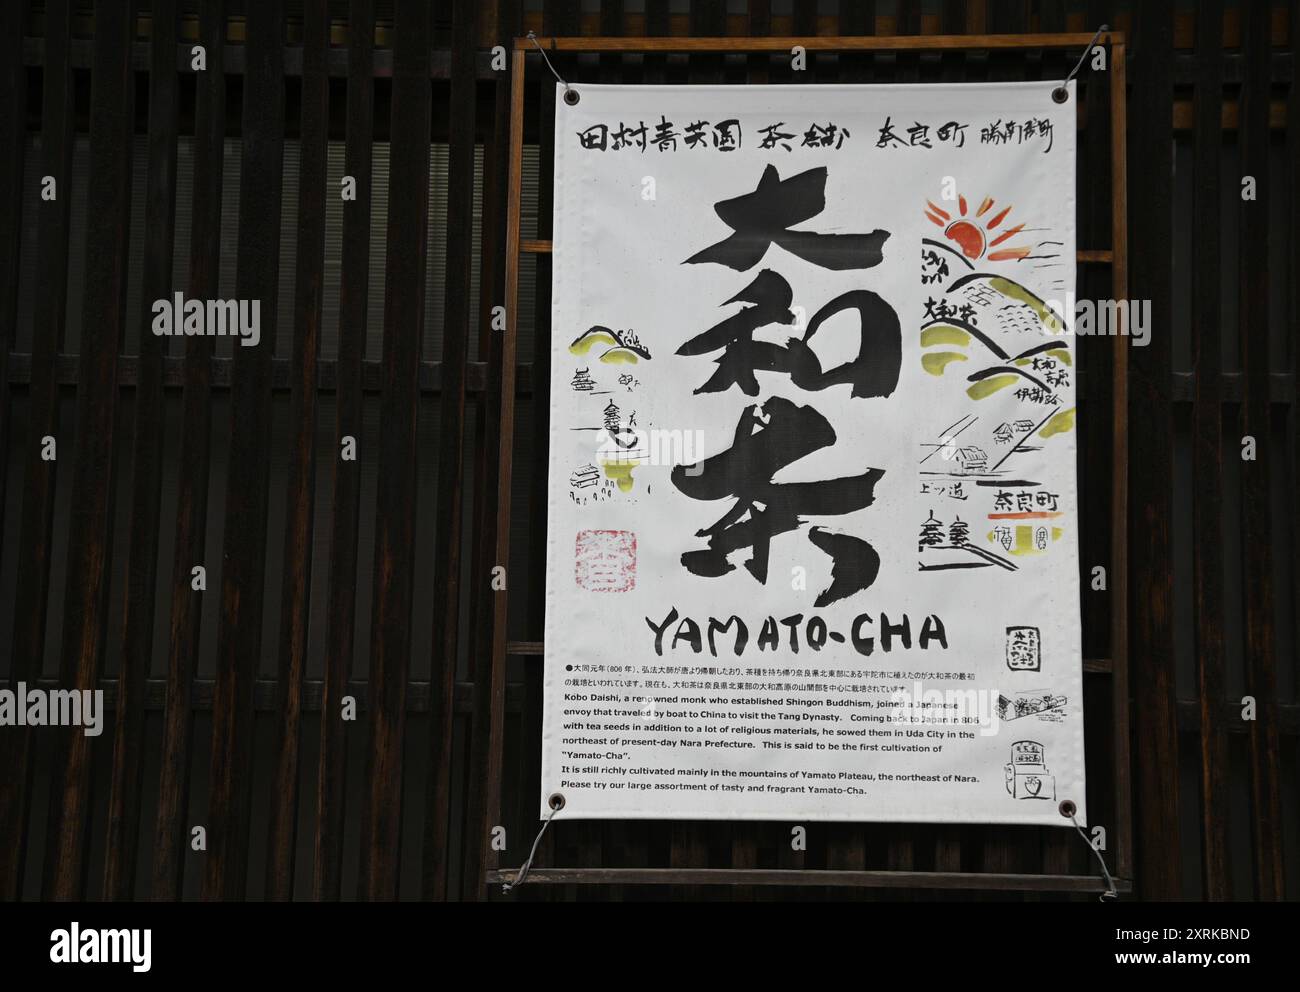 田村青芳園 茶舗 奈良町 勝南院町
大和茶
大和茶
大和
高原
伊賀路
上ツ道
奈良町
YAMATO-CHA
●大同元年(806年)、弘法大師が唐より帰朝したおり、茶種を持ち帰り奈良県北東部にある宇陀市に植えたのが大和茶の最初
の栽培といわれています。現在も、大和茶は奈良県北東部の大和高原の山間部を中心に栽培されています。
Kōbo Daishi, a renowned monk who established Shingon Buddhism, joined a Japanese
envoy that traveled by boat to China to visit the Tang Dynasty. Coming back to Japan in 806
with tea seeds in addition to a lot of religious materials, he sowed them in Uda City in the
northeast of present-day Nara Prefecture. This is said to be the first cultivation of
“Yamato-Cha”.
It is still richly cultivated mainly in the mountains of Yamato Plateau, the northeast of Nara.
Please try our large assortment of tasty and fragrant Yamato-Cha.
alamy
alamy
Image ID: 2XRKBND
www.alamy.com